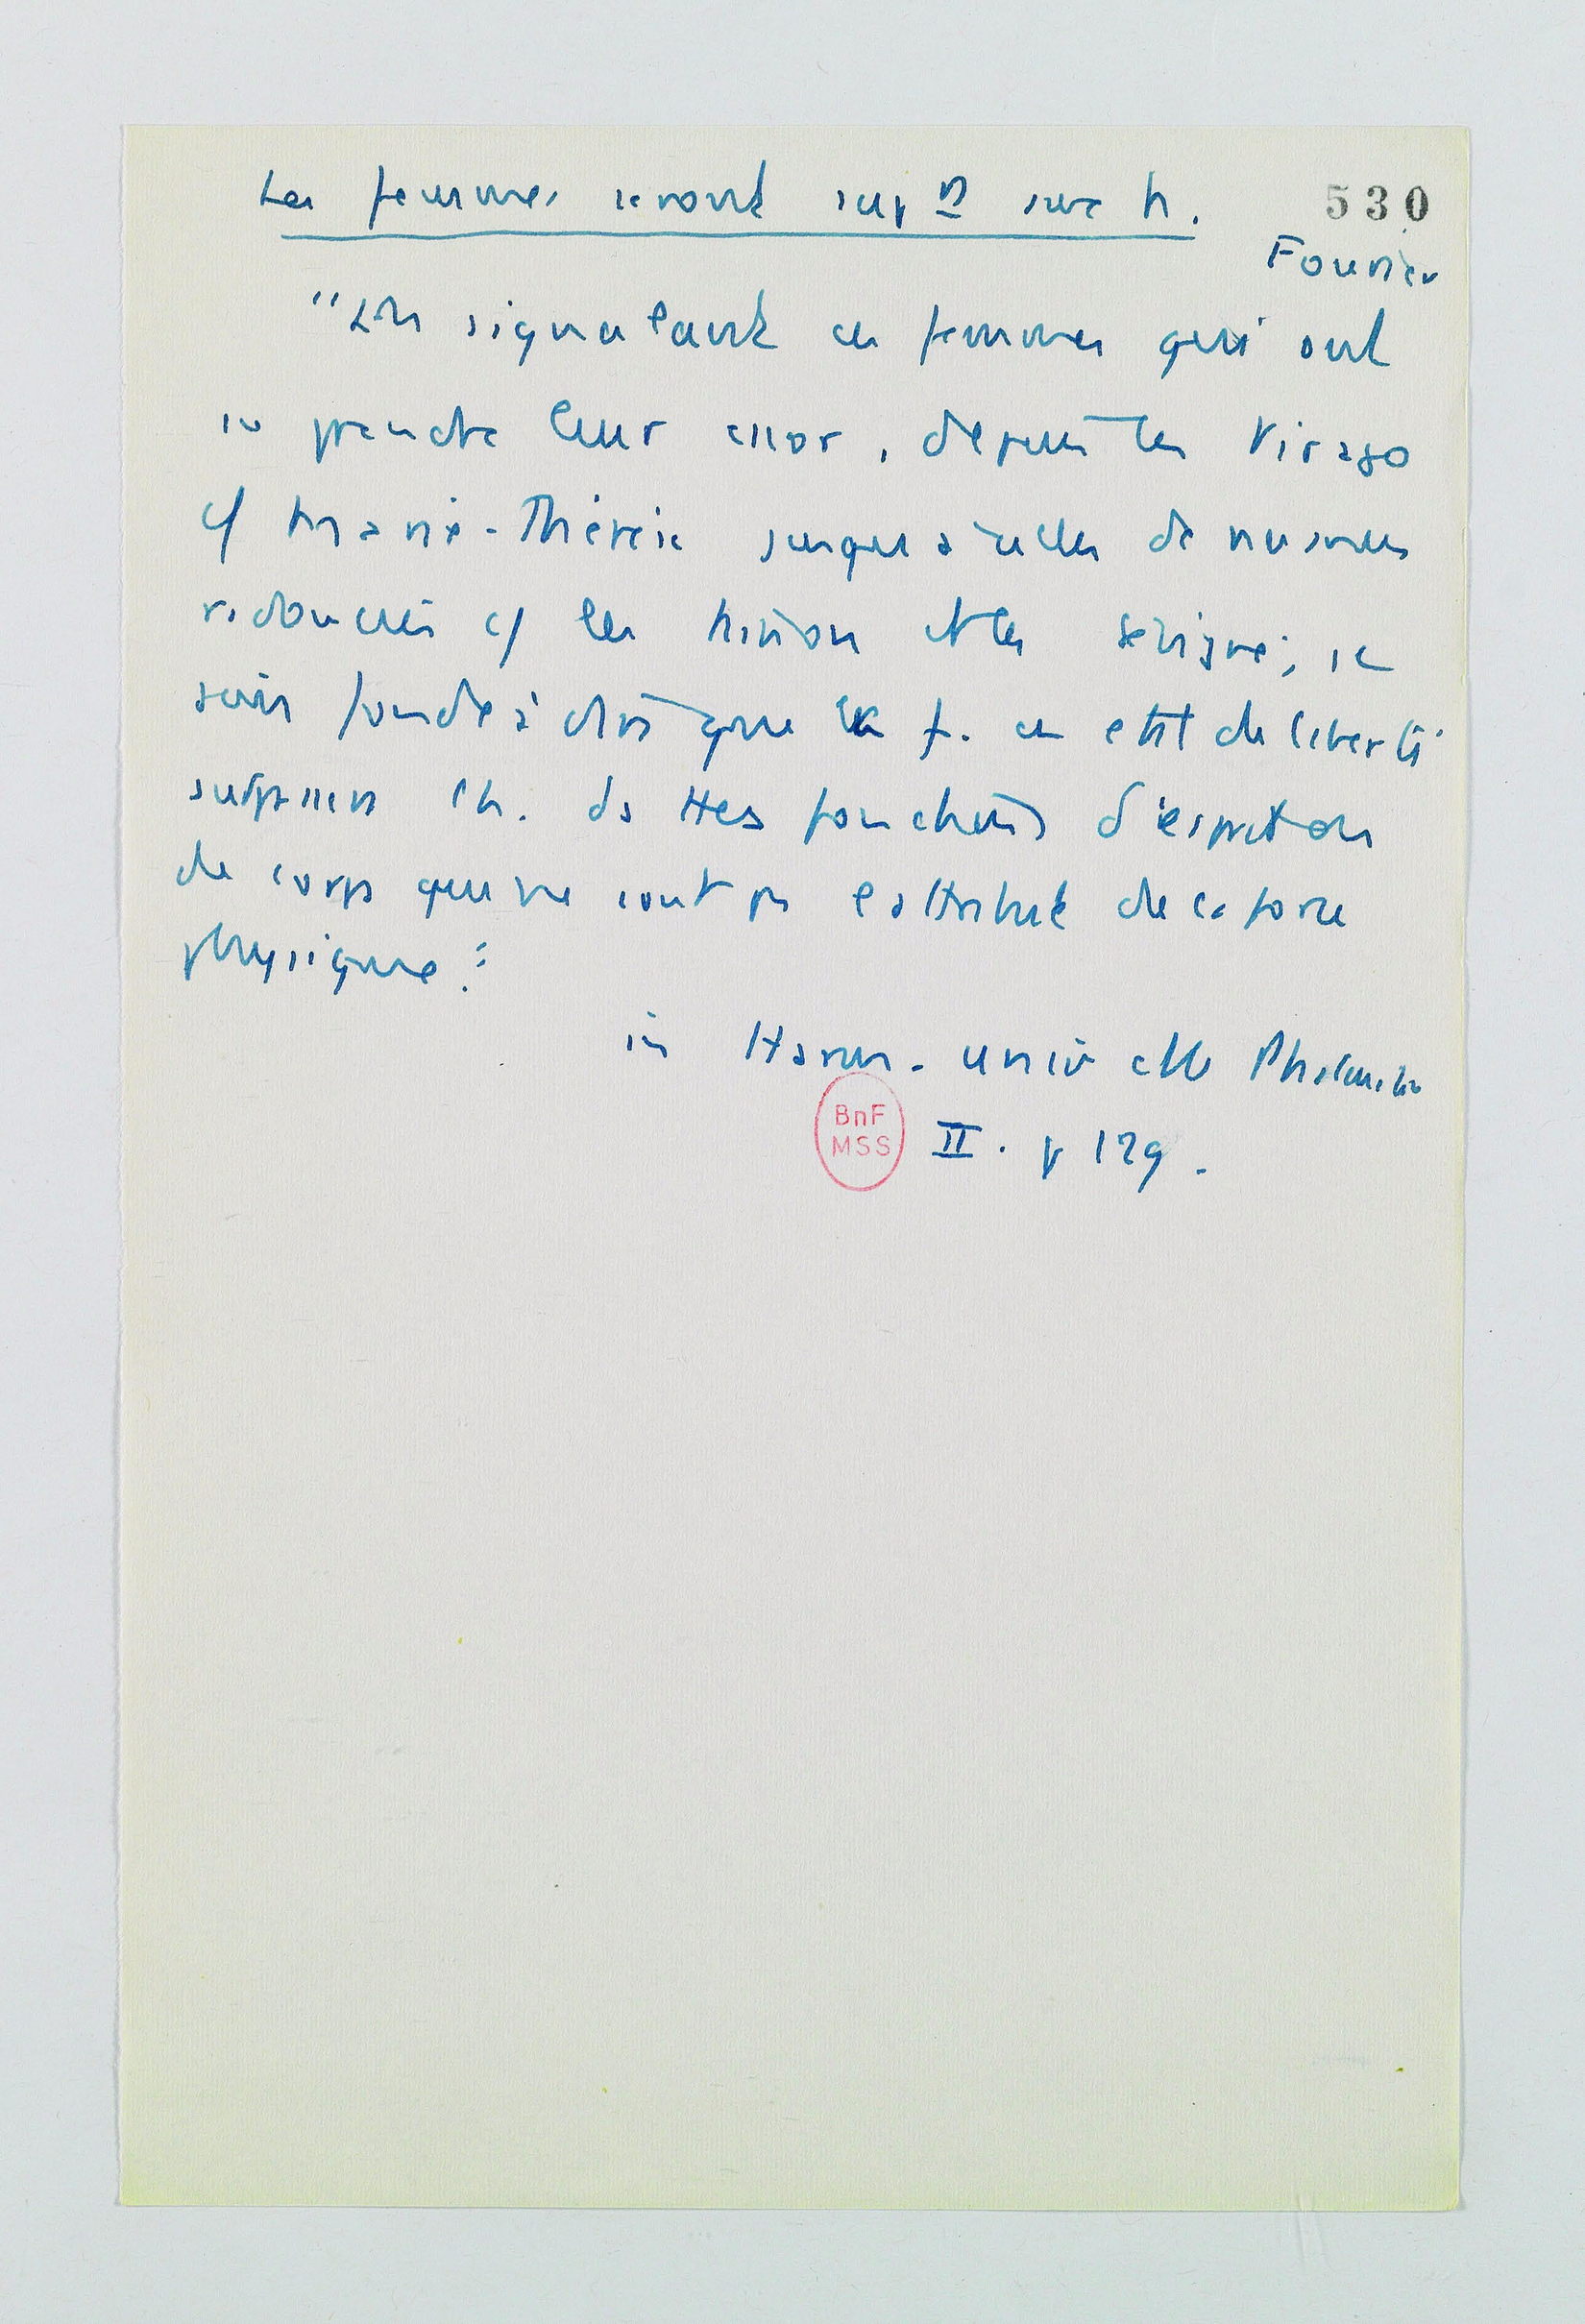 Les femmes seront sup<sup>res</sup> aux h.
530
Fourier
"En signalant ces femmes qui ont
su prendre leur essor, depuis les Virago
c/ Marie-Thérèse jusqu'à celles de nuances
radoucies c/ les Ninon et les Sévigné, je
suis fondé à dire que la f. en état de liberté
surpassera l'h. ds ttes fonctions d'esprit ou
de corps qui ne sont pas l'attribut de la force
physique."
in Harm. univ et le Phalanstère
BnF
MSS
II. p 129.